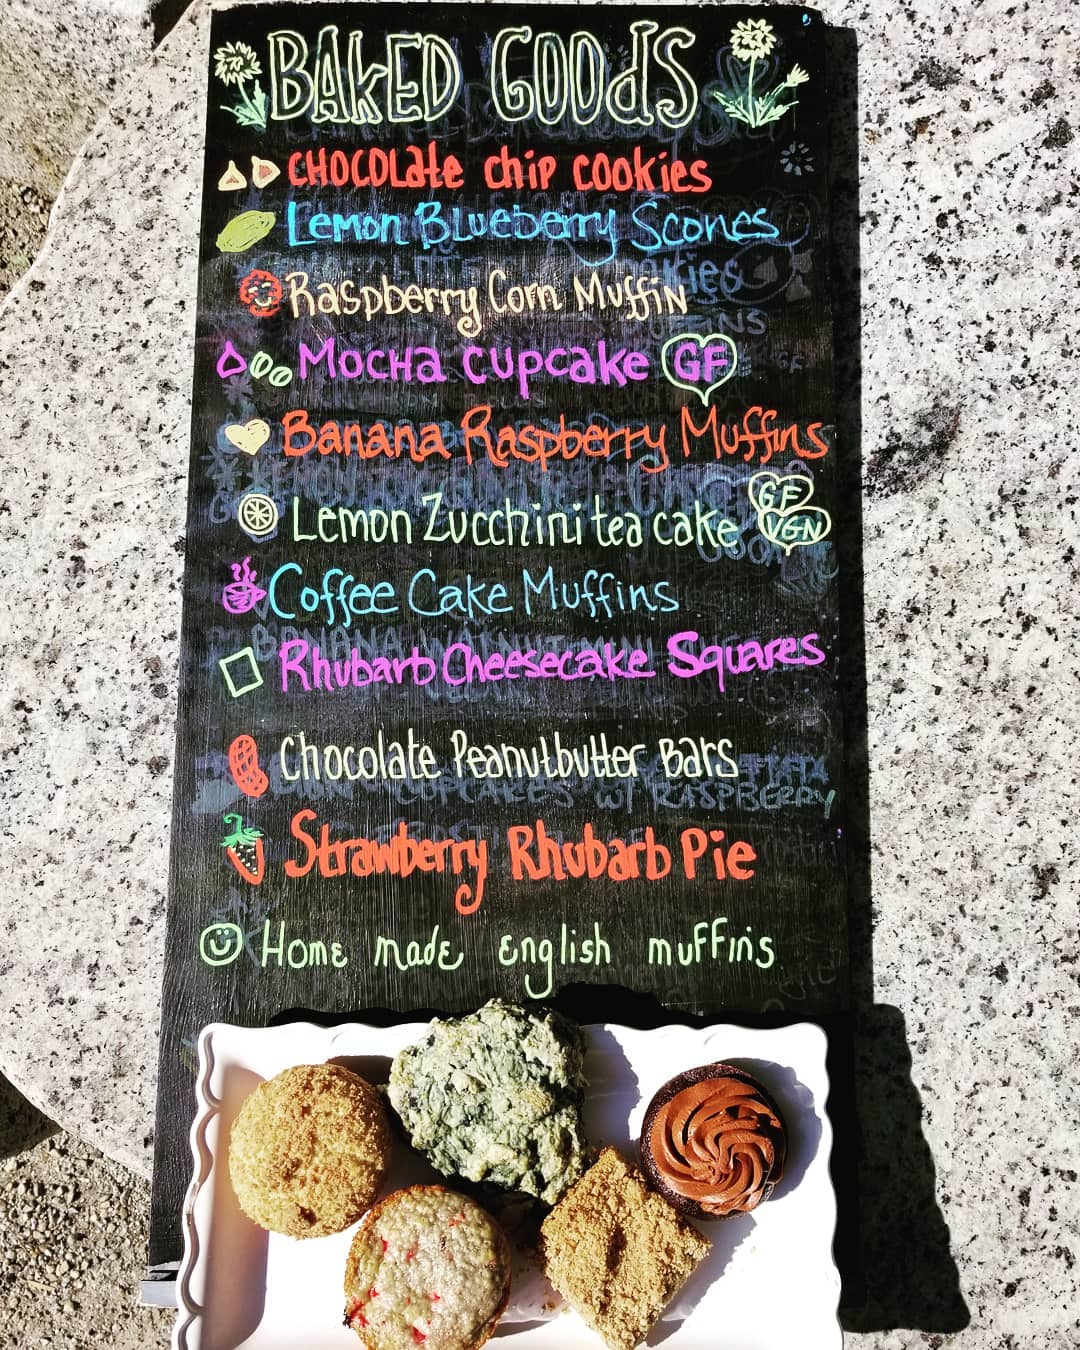 BAKED GOOdS
CHOCOLate chip cookies
Lemon Blueberry Scones
Raspberry Corn Muffin
Mocha cupcake GF
Banana Raspberry Muffins
Lemon Zucchini tea cake GF VGN
Coffee Cake Muffins
Rhubarb Cheesecake Squares
Chocolate Peanutbutter Bars
CUPCAKES W/ RASPBERRY
Strawberry Rhubarb Pie
Home made english muffins